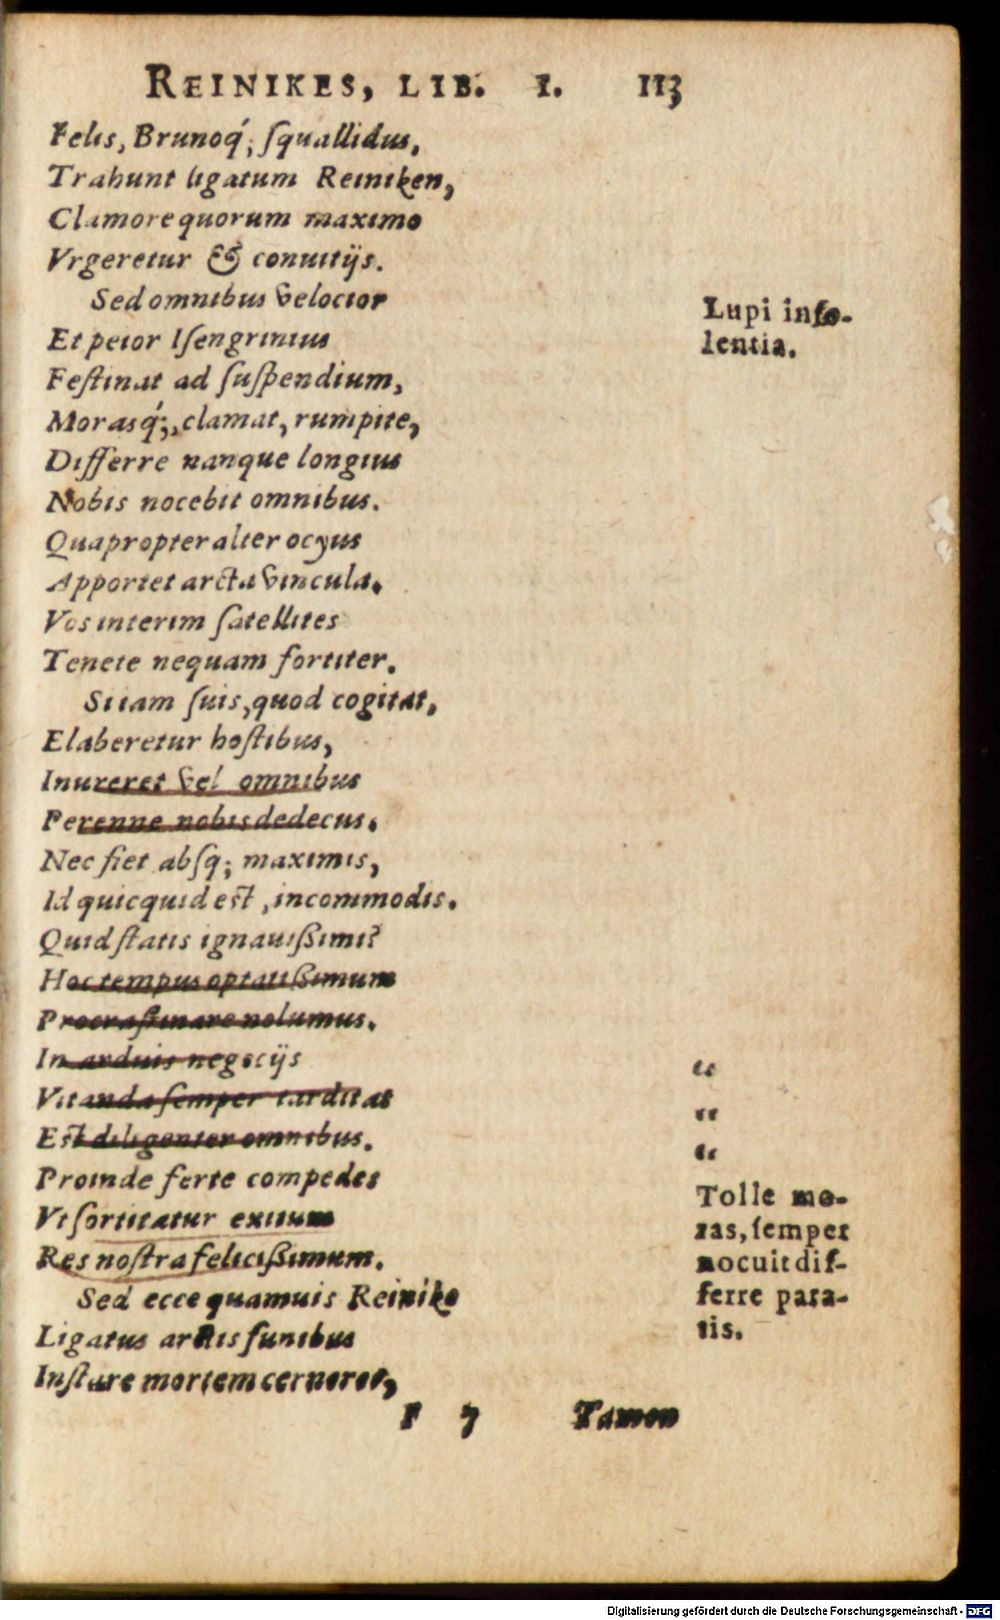 REINIKES, LIB. I. 113
Felis, Brunoq́; ſquallidus,
Trahunt ligatum Reiniken,
Clamore quorum maximo
Vrgeretur & conuitijs.
Sed omnibus velocior
Et peior Iſengrinius
Feſtinat ad ſuſpendium,
Morasq́;, clamat, rumpite,
Differre nanque longius
Nobis nocebit omnibus.
Quapropter alter ocyus
Apportet arcta vincula.
Vos interim ſatellites
Tenete nequam fortiter.
Si iam ſuis, quod cogitat,
Elaberetur hoſtibus,
Inureret vel omnibus
Perenne nobis dedecus.
Nec fiet abſq; maximis,
Id quicquid eſt, incommodis.
Quid ſtatis ignauißimi?
Hoc tempus optatißimum
Procraſtinare nolumus.
In arduis negocijs
Vitanda ſemper tarditas
Eſt diligenter omnibus.
Proinde ferte compedes
Vt ſortitatur exitum
Res noſtra felicißimum.
Sed ecce quamuis Reinike
Ligatus arctis funibus
Inſtare mortem cerneret,
F 7 Tamen
Lupi inſo-
lentia.
“
“
“
Tolle mo-
ras, ſemper
nocuit dif-
ferre para-
tis.
Digitalisierung gefördert durch die Deutsche Forschungsgemeinschaft - DFG